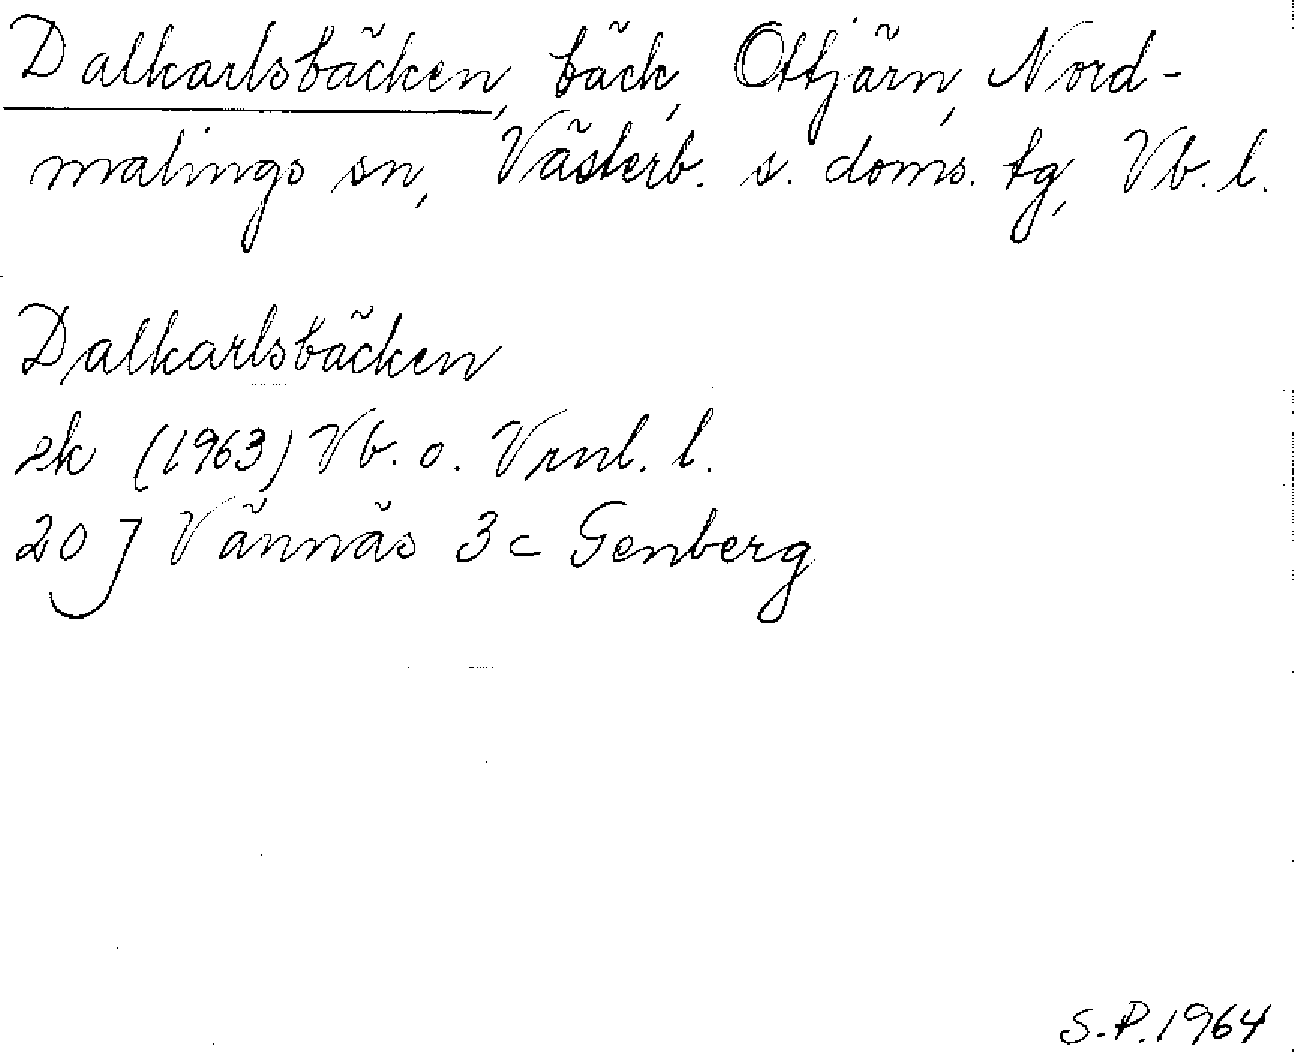 Dalkarlsbäcken, bäck, Ottjärn, Nord-
malings sn, Västerb. s. doms. tg, Vb. l.
Dalkarlsbäcken
ek (1963) Vb. o. Vrnl. l.
20 J Vännäs 3 c Genberg
S.P. 1964